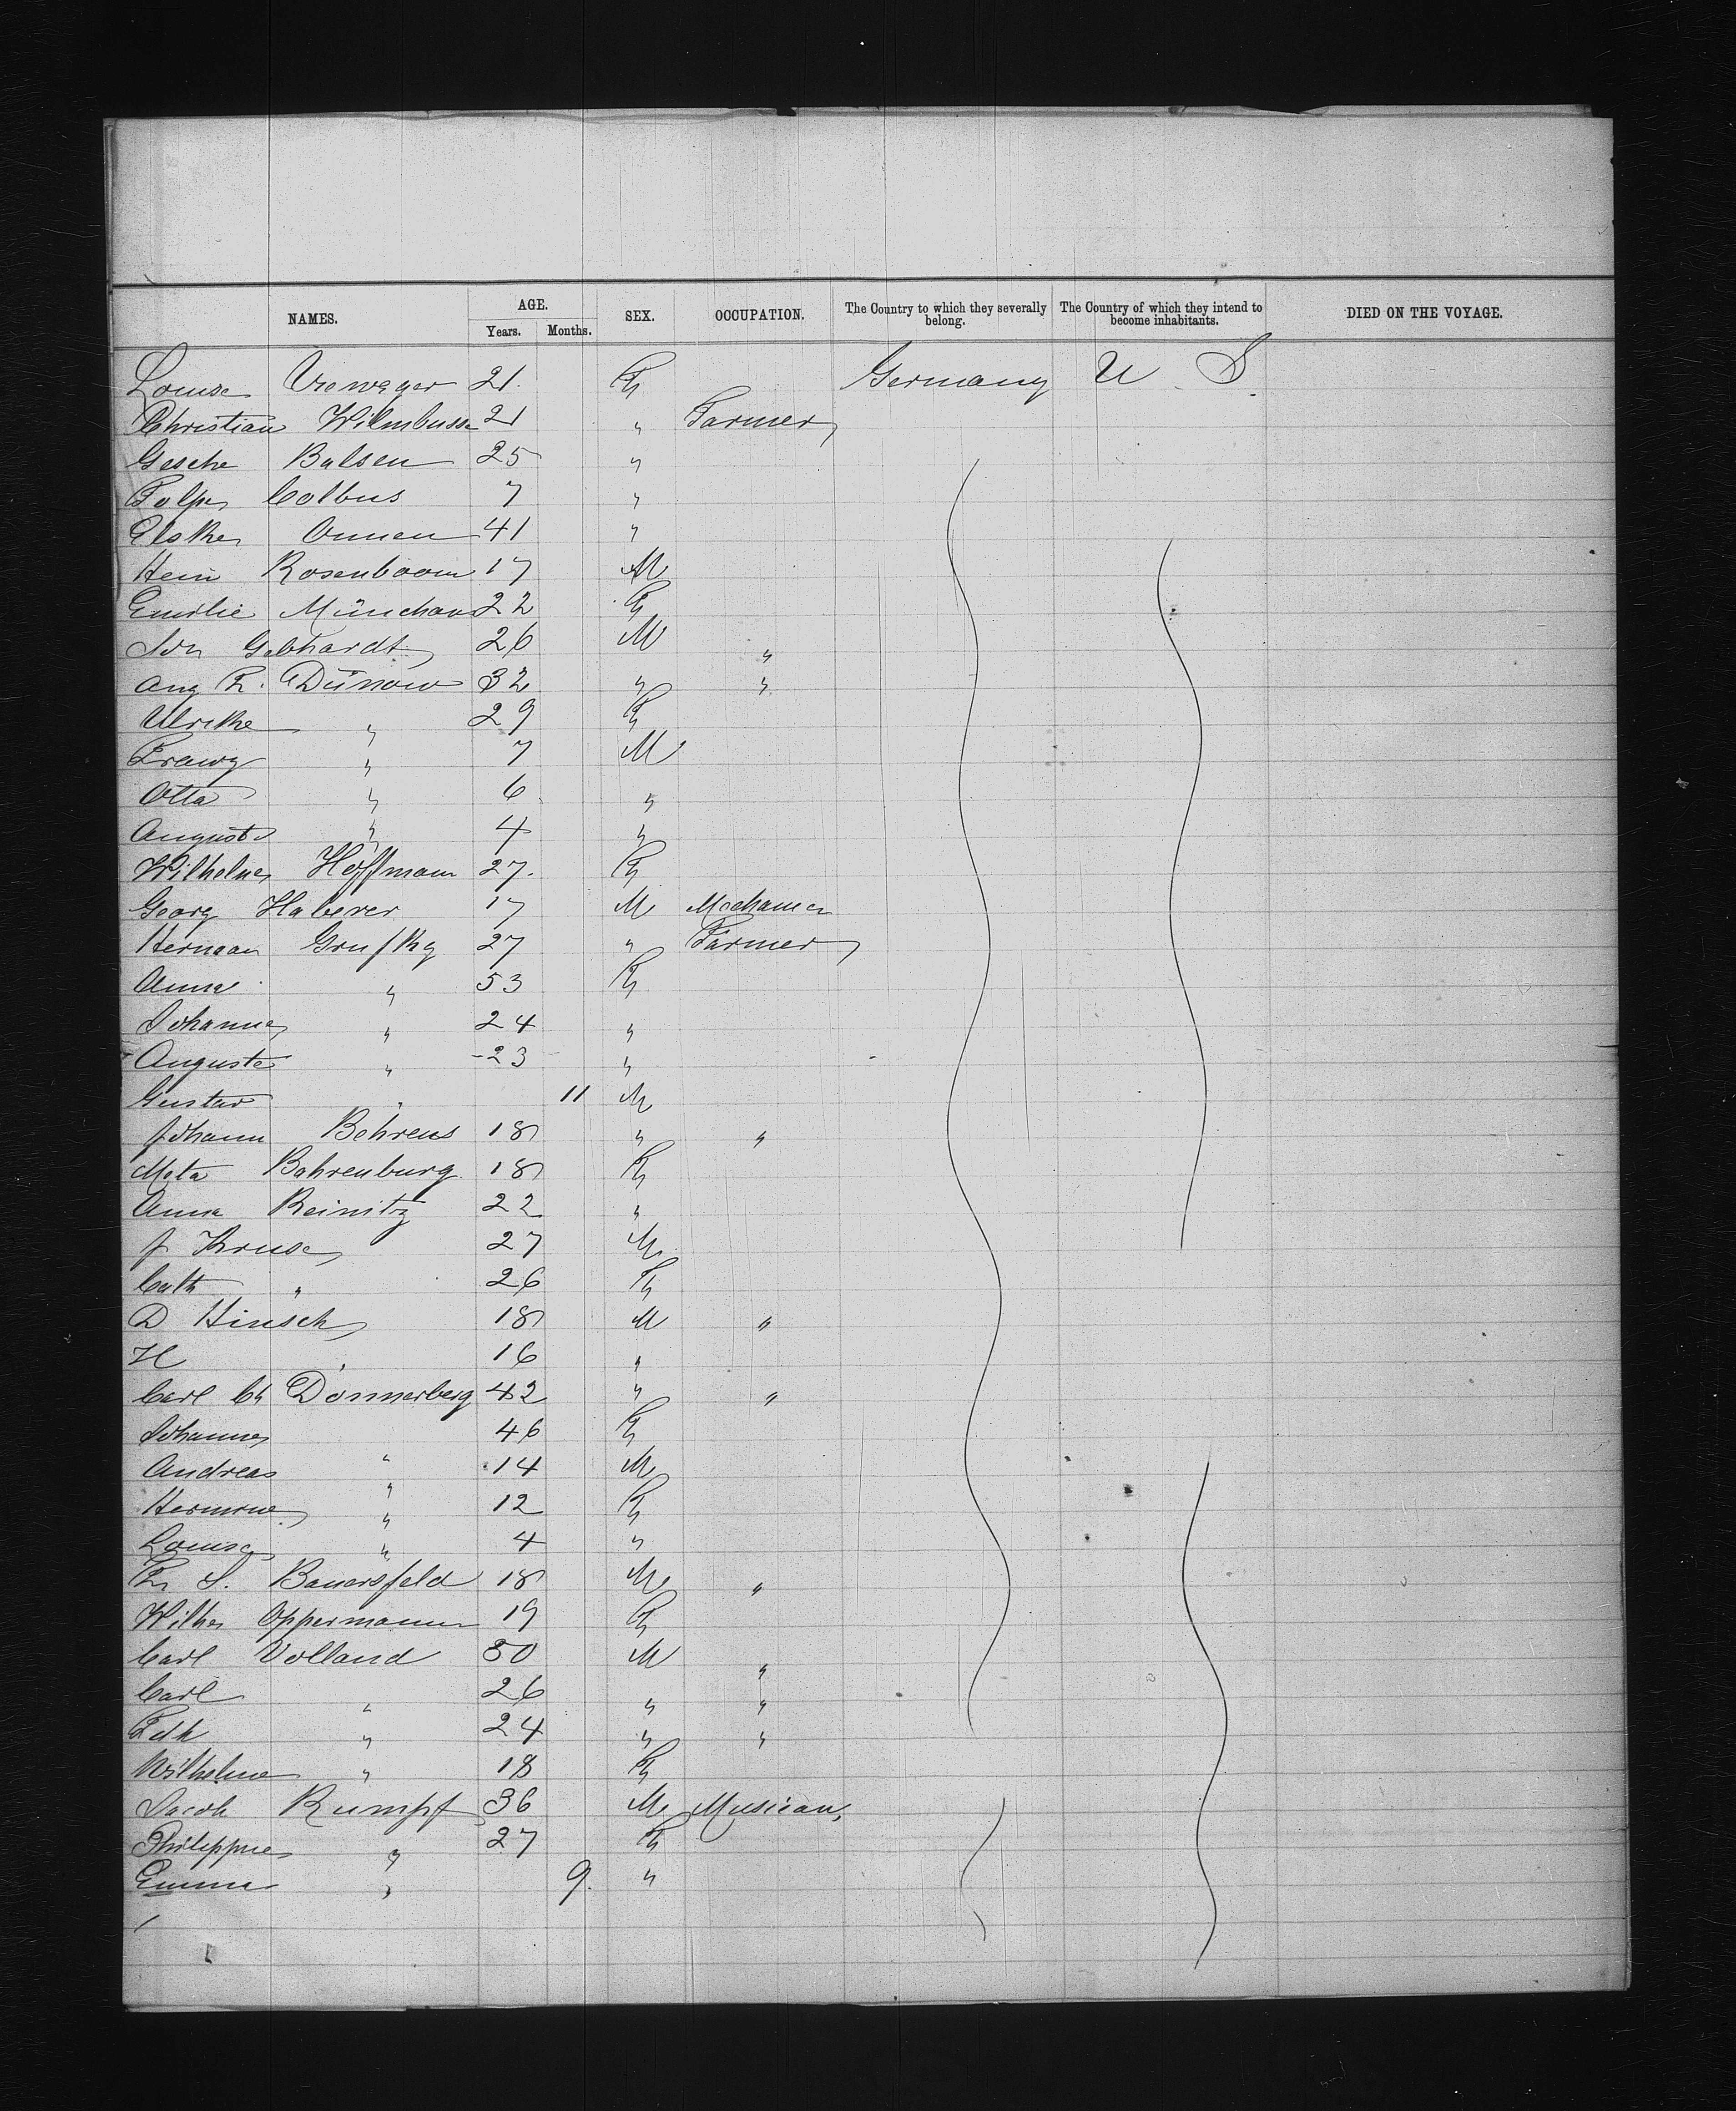 NAMES. AGE. Years. Months. SEX. OCCUPATION. The Country to which they severally belong. The Country of which they intend to become inhabitants. DIED ON THE VOYAGE.
Louise 21. F Germany U. S.
Christian 21 " Farmer
Gesche Bulsen 25 "
Colbus 7 "
Elske Onnen 41 "
Hein Rosenboom 17 M
Emilie 22 F
Gebhardt 26 M "
Aug F. Dünow 32 " "
Ulrike " 29 F
" 7 M
Otto " 6 "
August " 4 "
Hoffmann 27. F
Georg Haberer 17 M
Herman 27 " Farmer
Anna " 53 F
Johanna " 24 "
Auguste " 23 "
Gustav " 11 M
Johann Behrens 18 " "
Meta Bahrenburg 18 F
Anna Reinitz 22 "
J Kruse 27 M
Cath " 26 F
D Hinsch 18 M "
H " 16 "
Carl Ch Donnerberg 42 " "
46 F
Andreas " 14 M
Hermine " 12 F
Louise " 4 "
Fr S. Bauersfeld 18 M "
Oppermann 19 F
Carl Volland 30 M "
Carl " 26 " "
" 24 " "
Wilhelme " 18 F
Jacob Rumpf 36 M Musician
Philippine " 27 F
Emma " 9. "